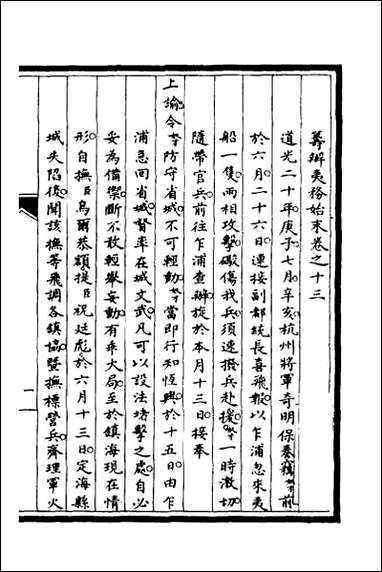 籌辦夷務始末卷之十三
道光二十年庚子七月辛亥杭州將軍奇明保奏竊奴才前
於六月二十六日連接副都統長喜飛報以乍浦忽來夷
船一隻兩相攻擊礮傷我兵須速撥兵赴援奴才一時激切
隨帶官兵前往乍浦查辦旋於本月十三日接奉
上諭令奴才防守省城不可輕動奴才當即行知恆興於十五日由乍
浦急回省城督率在城文武凡可以設法堵擊之處自必
妥為備禦斷不敢輕舉妄動有乖大局至於鎮海現在情
形自撫臣烏爾恭額提臣祝廷彪於六月十三日定海縣
城失陷後聞該撫等飛調各鎮協暨撫標營兵齊理軍火
一